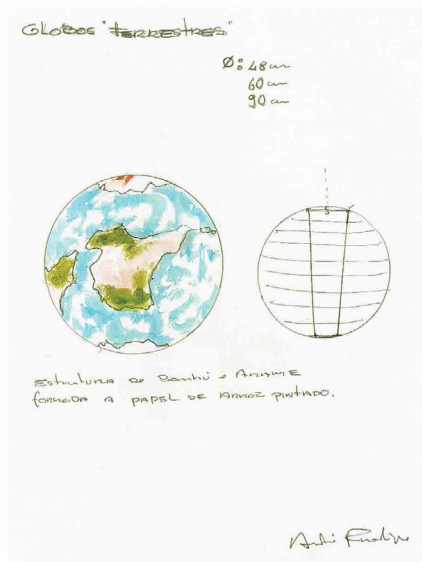 GLOBOS "TERRESTRES"
Ø: 48 cm
60 cm
90 cm
Estrutura de Bambú e Arame
forneida a papel de arroz pintado.
André Rodrigues